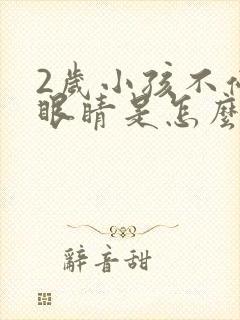 2歲小孩不
眼睛是怎麼
辭音甜